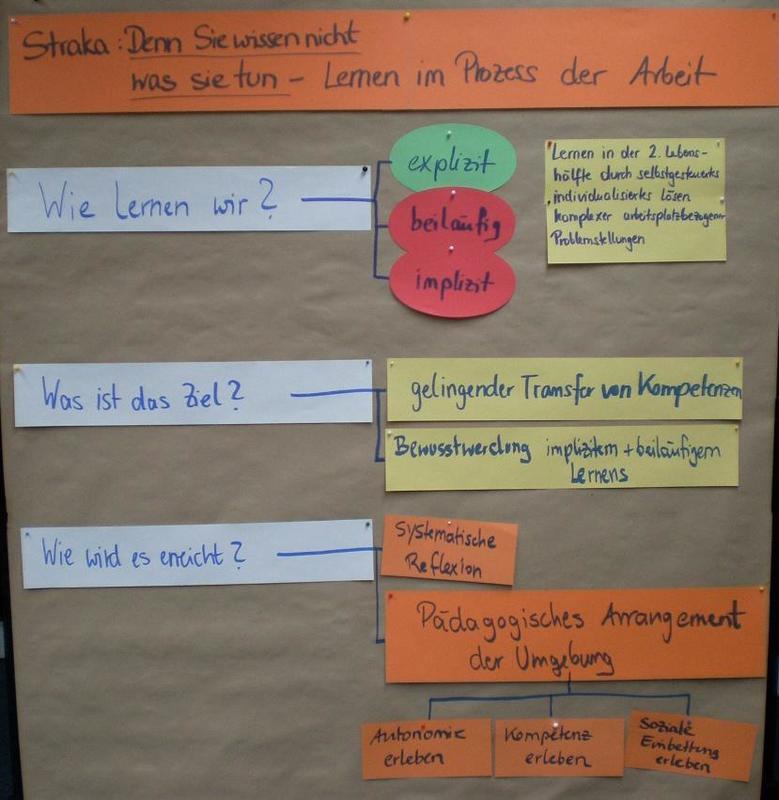 Straka: Denn Sie wissen nicht
was sie tun - Lernen im Prozess der Arbeit
Wie lernen wir?
explizit
beiläufig
implizit
Lernen in der 2. Lebens-
hälfte durch selbstgesteuertes
individualisiertes lösen
komplexer arbeitsplatzbezogener
Problemstellungen
Was ist das Ziel?
gelingender Transfer von Kompetenzen
Bewusstwerdung implizitem + beiläufigem
Lernens
Wie wird es erreicht?
Systematische
Reflexion
Pädagogisches Arrangement
der Umgebung
Autonomie
erleben
Kompetenz
erleben
Soziale
Einbettung
erleben